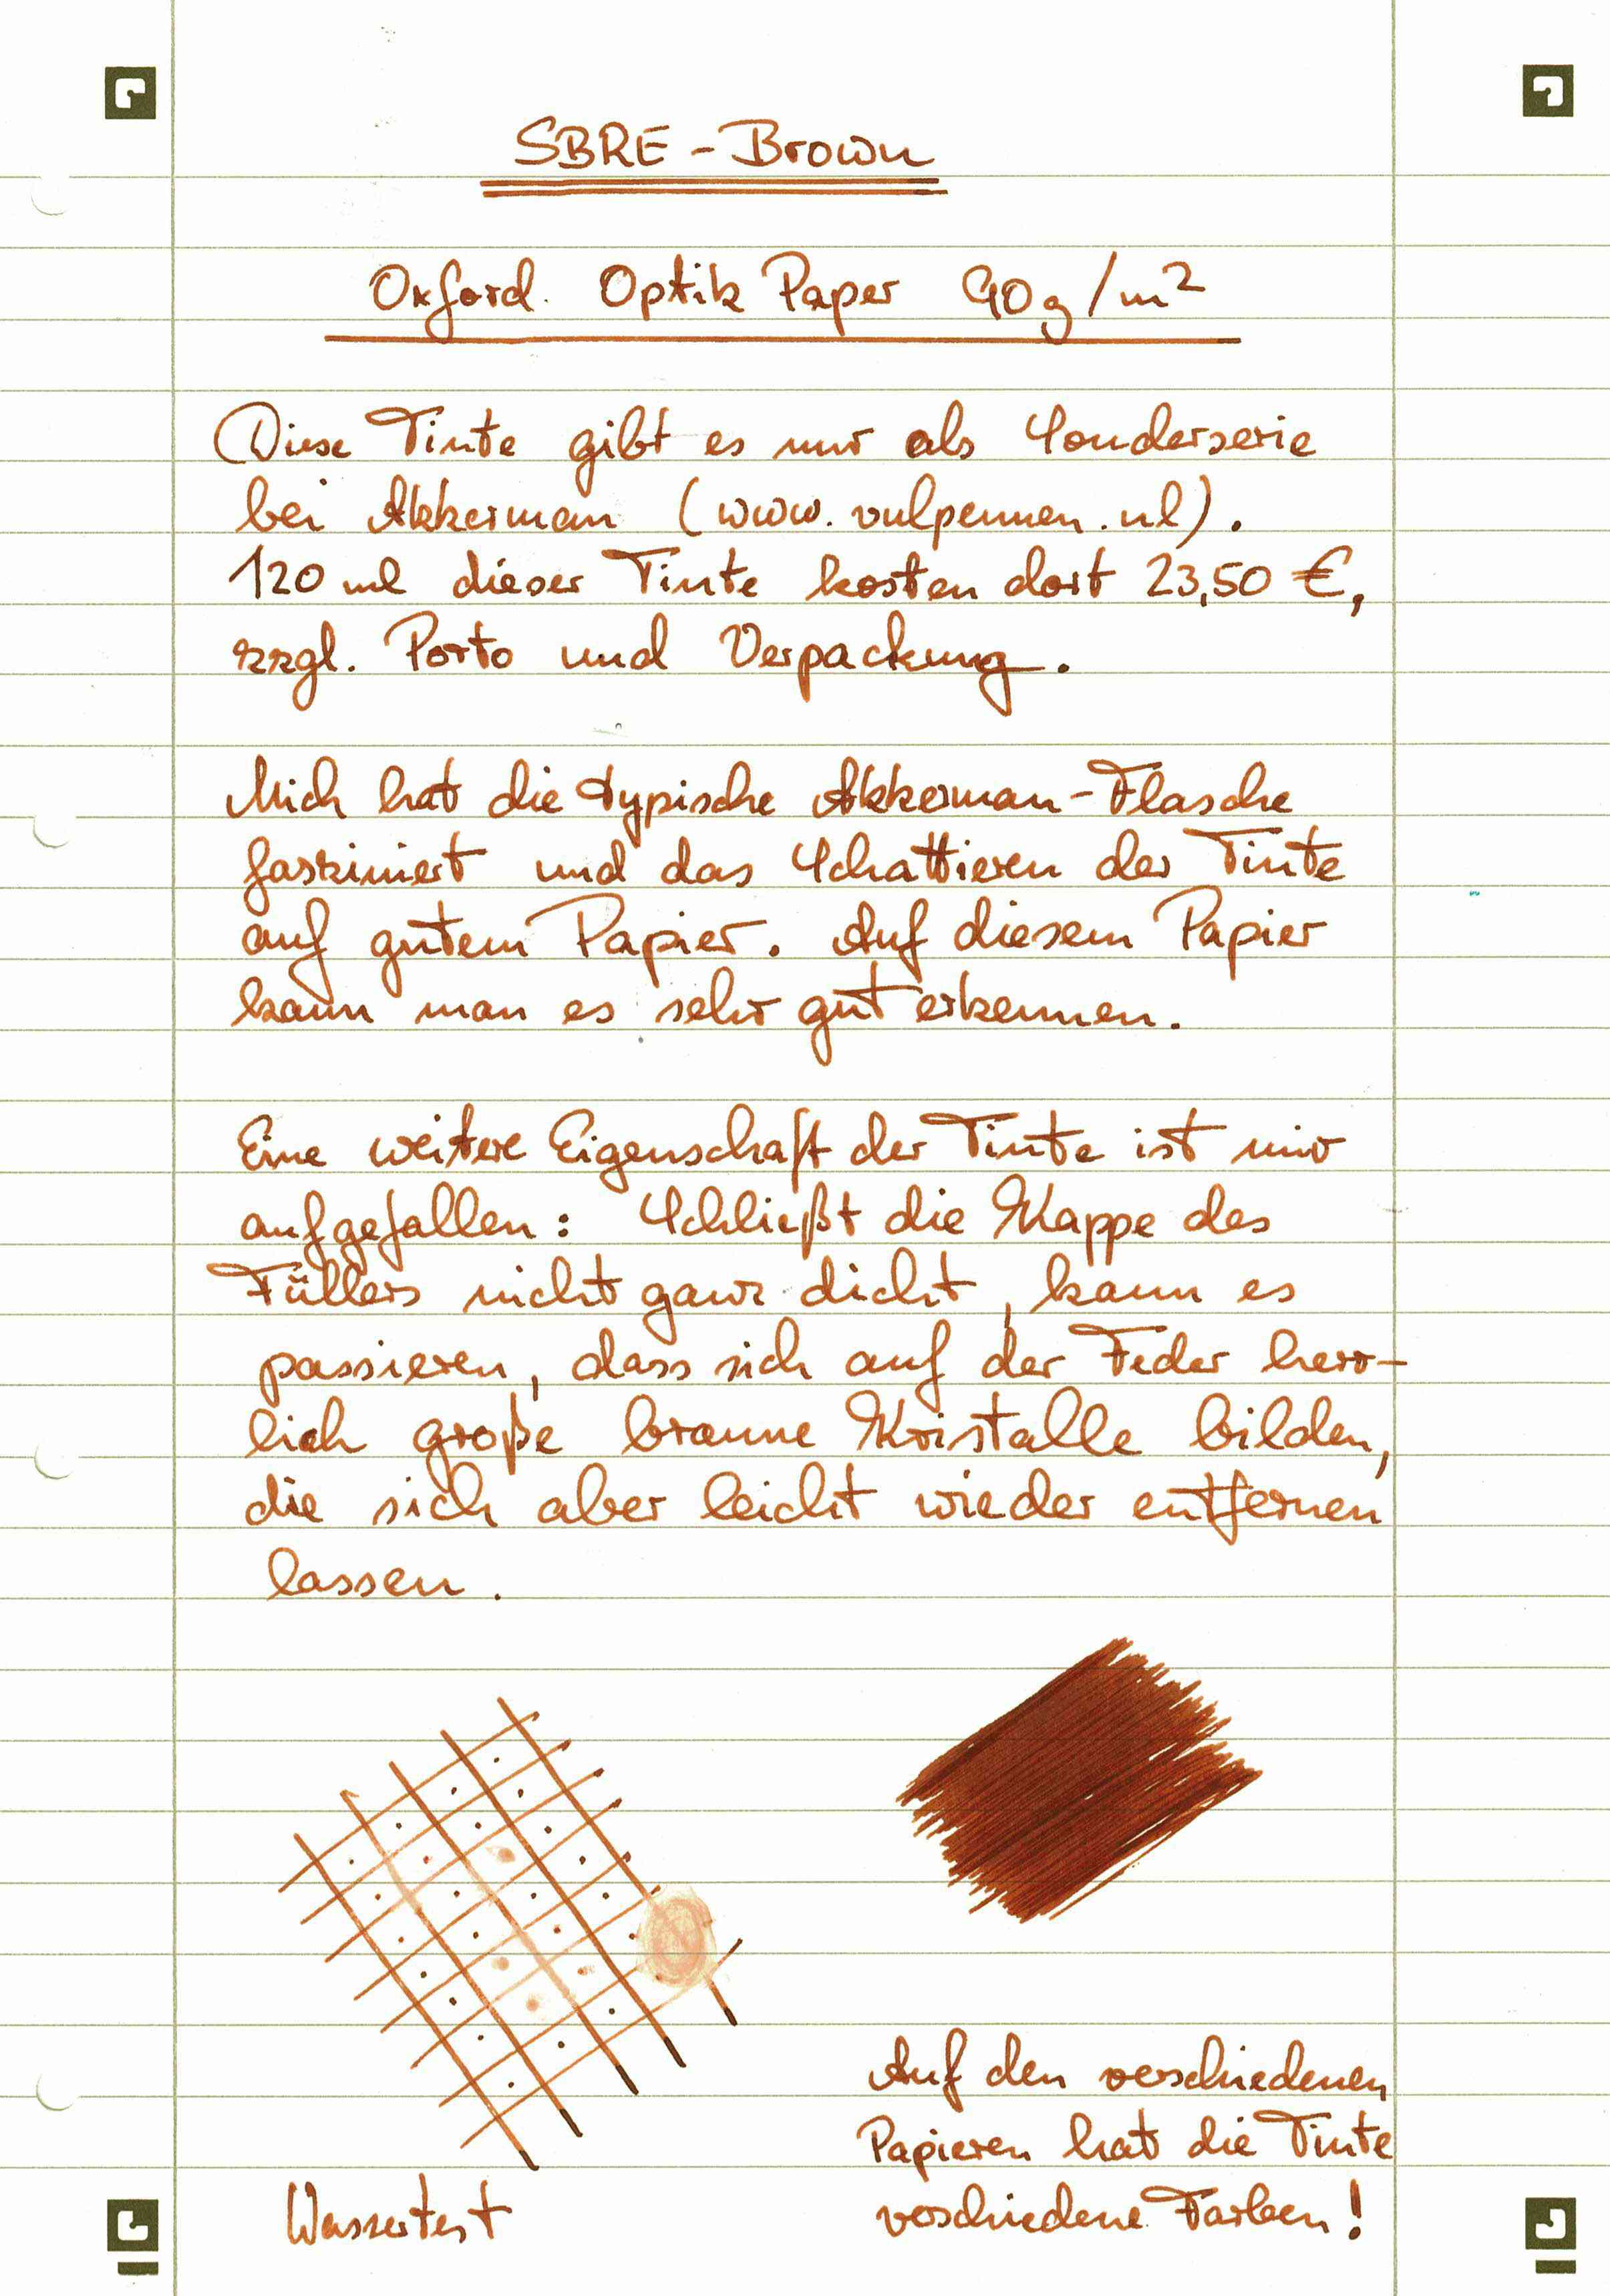 SBRE - Brown
Oxford Optik Paper 90g/m²
Diese Tinte gibt es nur als Sonderserie
bei Akkerman (www.vulpennen.nl).
120 ml dieser Tinte kosten dort 23,50 €,
zzgl. Porto und Verpackung.
Mich hat die typische Akkerman-Flasche
fasziniert und das Schattieren der Tinte
auf gutem Papier. Auf diesem Papier
kann man es sehr gut erkennen.
Eine weitere Eigenschaft der Tinte ist mir
aufgefallen: Schließt die Kappe des
Füllers nicht ganz dicht, kann es
passieren, dass sich auf der Feder herr-
lich große braune Kristalle bilden,
die sich aber leicht wieder entfernen
lassen.
Auf den verschiedenen
Papieren hat die Tinte
verschiedene Farben!
Wassertest